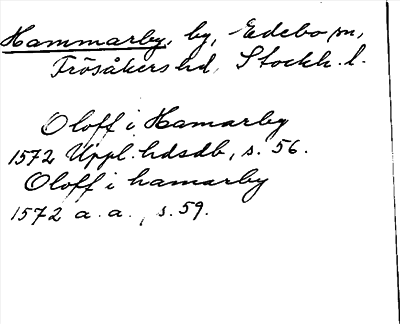 Hammarby, by, Edebo sn,
Frösåkers hd, Stockh. l.
Oloff i Hamarby
1572 Uppl. hdsdb, s. 56.
Oloff i hamarby
1572 a. a., s. 59.